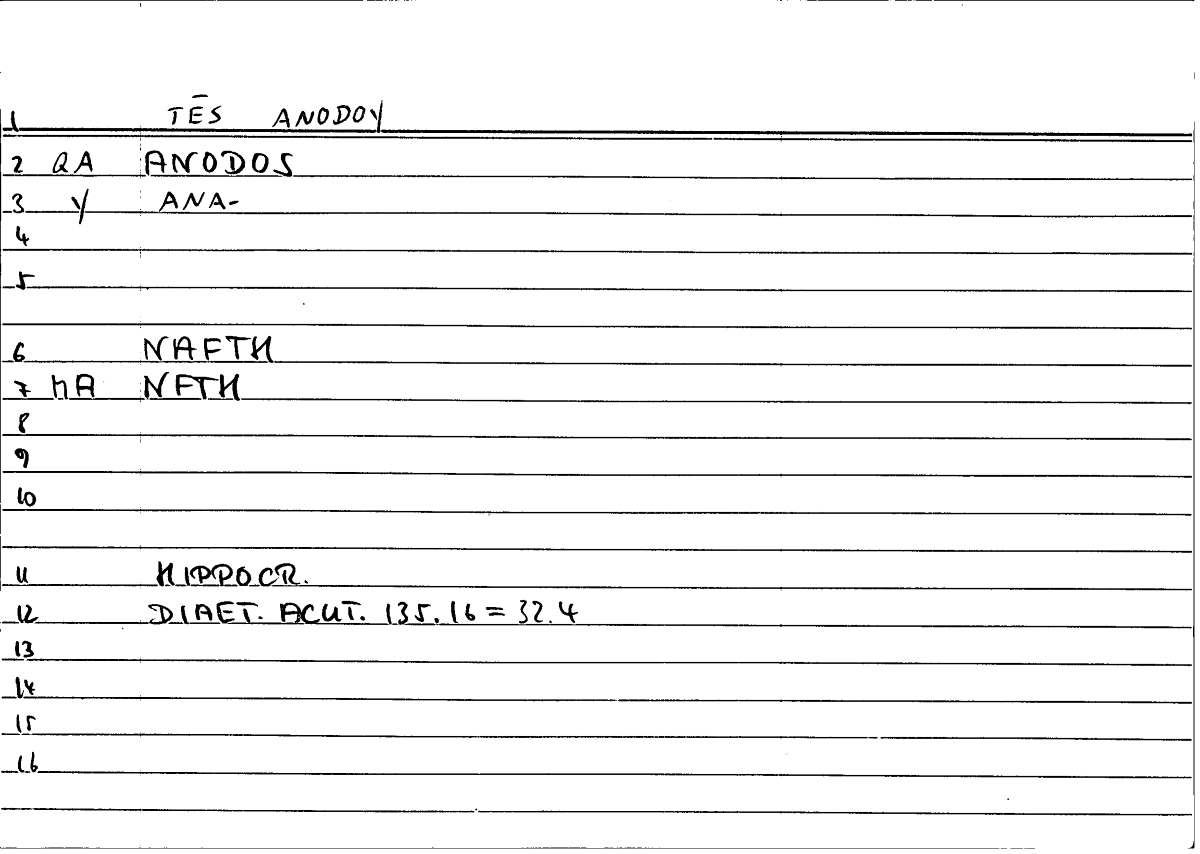 1 TĒS ANODOY
2 QA ANODOS
3 Y ANA-
4
5
6 NAFTH
7 hA NFTH
8
9
10
11 HIPPOCR.
12 DIAET. ACUT. 135.16 = 32.4
13
14
15
16